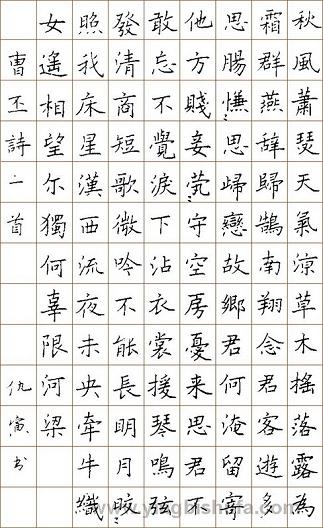 秋風蕭瑟天氣涼草木搖落露為
霜群燕辭歸鵠南翔念君客遊多
思腸慊〻思歸戀故鄉君何淹留寄
他方賤妾茕〻守空房憂来思君不
敢忘不覺淚下沾衣裳援琴鳴弦
發清商短歌微吟不能長明月皎〻
照我床星漢西流夜未央牽牛織
女遙相望尔獨何辜限河梁
曹丕詩一首 仇寅书
www.yingbishufa.com